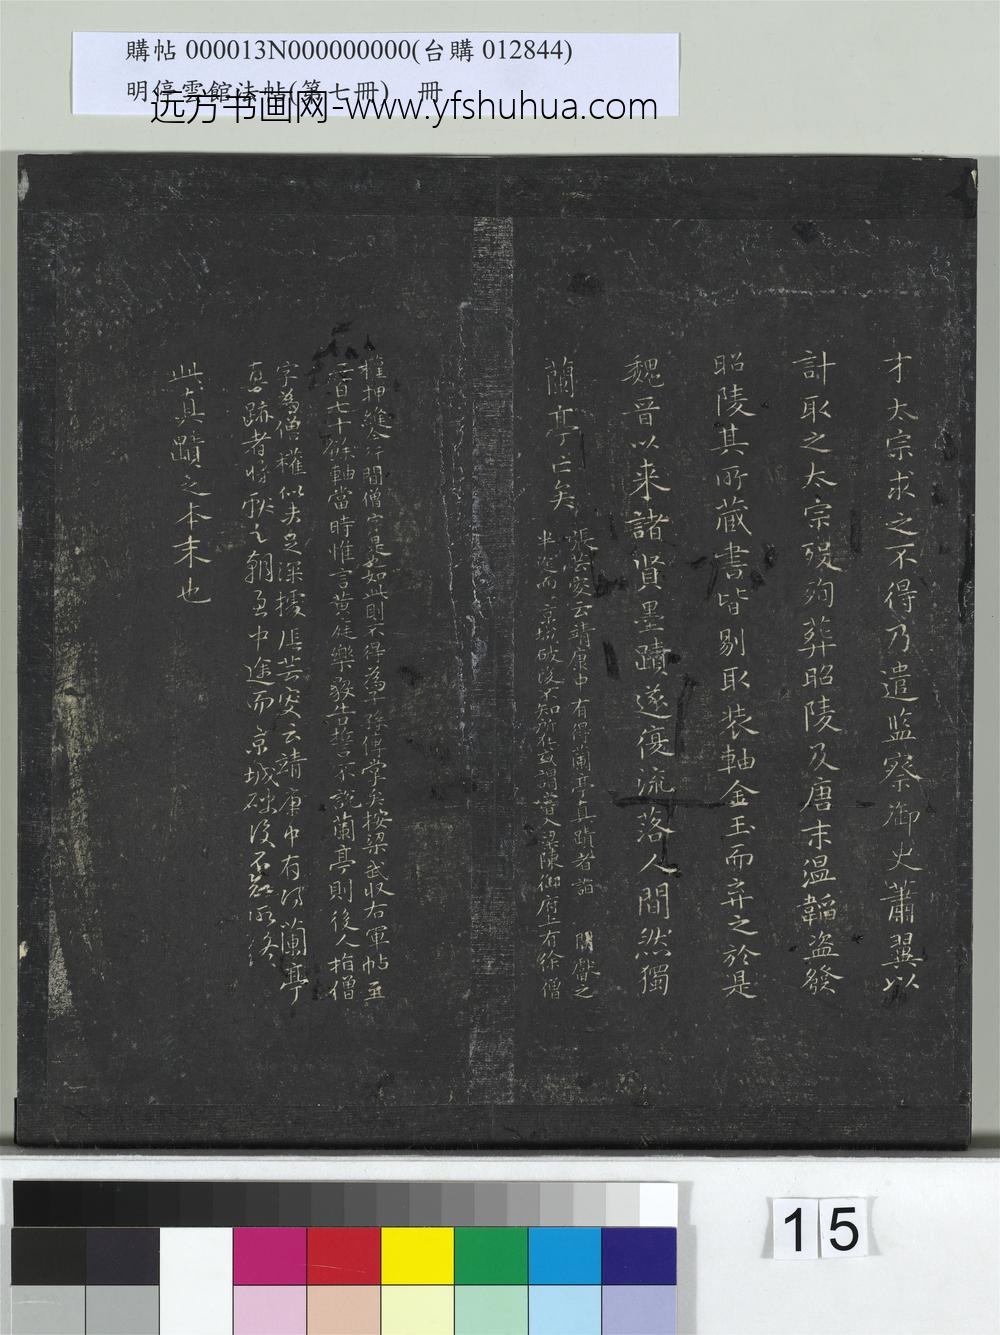 購帖 000013N000000000(台購 012844)
明停雲館法帖(第七冊) 冊
远方书画网-www.yfshuhua.com
才太宗求之不得乃遣监察御史蕭翼以
計取之太宗歿殉葬昭陵及唐末温韜盗發
昭陵其所藏書皆剔取装軸金玉而弃之於是
魏晋以来諸賢墨蹟遂復流落人間然獨
蘭亭亡矣
張芸叟云靖康中有得蘭亭真蹟者詣 闕獻之
半途而京城破後不知所在或謂普入梁陳御府上有徐僧
權押縫今行間僧字是如此則不得為平 傳掌矣按梁武収右軍帖二
百七十餘軸當時惟言黄庭樂毅告誓不說蘭亭則後人指僧
字為僧權似失之深據張芸叟云靖康中有得蘭亭
真跡者将獻之朝至中途而京城破後不知所終
此真蹟之本末也
15